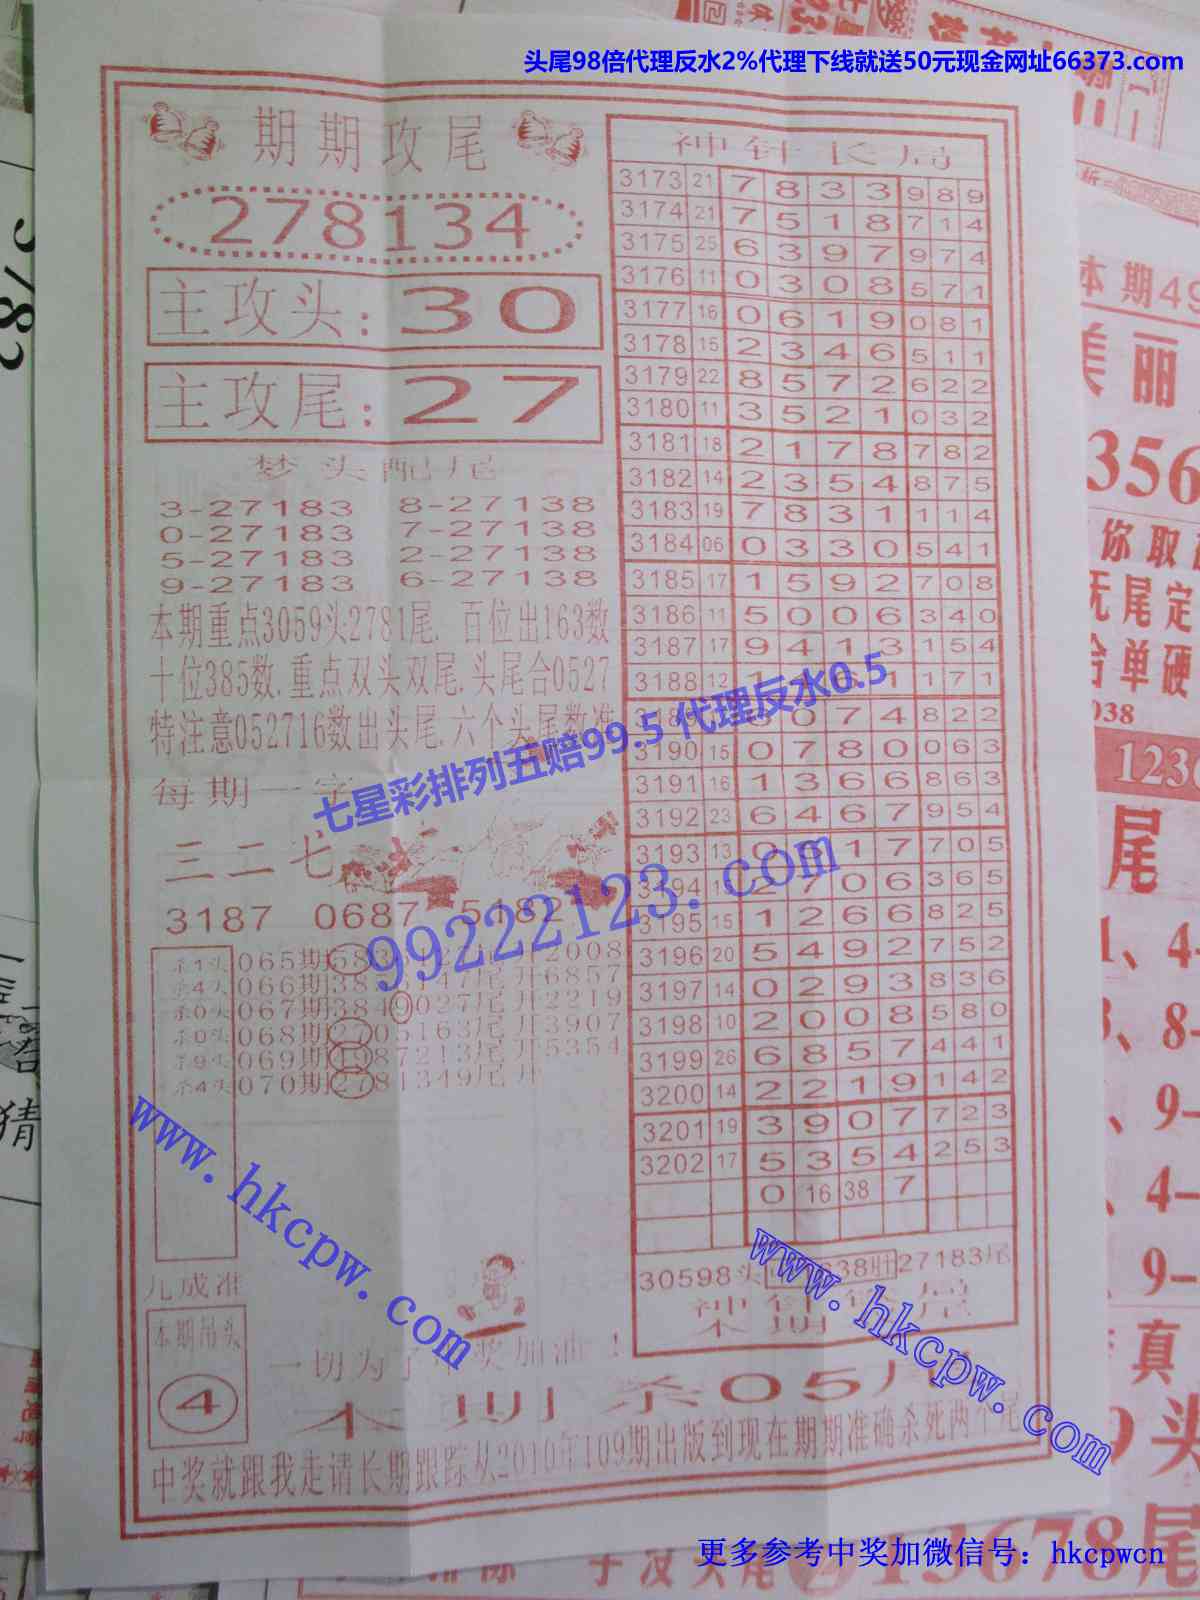 头尾98倍代理反水2%代理下线就送50元现金网址66373.com
期期攻尾
278134
主攻头:30
主攻尾:27
梦头配尾
3-27183 8-27138
0-27183 7-27138
5-27183 2-27138
9-27183 6-27138
本期重点3059头2781尾. 百位出163数
十位385数.重点双头双尾.头尾合0527
特注意052716数出头尾.六个头尾数准
每期一字
三二七
3187 0687 5182
杀1头065期683 尾开2008
杀4头066期385 47尾开6857
杀0头067期3849027尾开2219
杀0头068期2705163尾开3907
杀9头069期4987213尾开5354
杀4头070期2781349尾开
九成准
本期吊头
4
一切为了中奖加油!
本期杀05尾
中奖就跟我走请长期跟踪从2010年109期出版到现在期期准确杀死两个尾
神针长局
3173 21 7 8 3 3 9 8 9
3174 21 7 5 1 8 7 1 4
3175 25 6 3 9 7 9 7 4
3176 11 0 3 0 8 5 7 1
3177 16 0 6 1 9 0 8 1
3178 15 2 3 4 6 5 1 1
3179 22 8 5 7 2 6 2 2
3180 11 3 5 2 1 0 3 2
3181 18 2 1 7 8 7 8 2
3182 14 2 3 5 4 8 7 5
3183 19 7 8 3 1 1 1 4
3184 06 0 3 3 0 5 4 1
3185 17 1 5 9 2 7 0 8
3186 11 5 0 0 6 3 4 0
3187 17 9 4 1 3 1 5 4
3188 12 1 6 1 1 7 1
0 7 4 8 2 2
3190 15 0 7 8 0 0 6 3
3191 16 1 3 6 6 8 6 3
3192 23 6 4 6 7 9 5 4
3193 13 0 1 7 7 0 5
3194 2 7 0 6 3 6 5
3195 15 1 2 6 6 8 2 5
3196 20 5 4 9 2 7 5 2
3197 14 0 2 9 3 8 3 6
3198 10 2 0 0 8 5 8 0
3199 26 6 8 5 7 4 4 1
3200 14 2 2 1 9 1 4 2
3201 19 3 9 0 7 7 2 3
3202 17 5 3 5 4 2 5 3
0 16 38 7
30598头 638肚27183尾
七星彩排列五赔99.5 代理反水0.5
99222123.com
www.hkcpw.com
www.hkcpw.com
更多参考中奖加微信号：hkcpwcn
3782
猜
本期49
美丽
356
你取
无尾定
合单硬
038
123
尾
4-
8-
9-
4-
9-
真
9头
13678尾